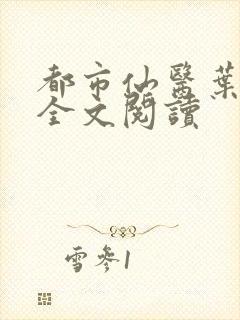 都市仙醫葉
全文閱讀
雪參1